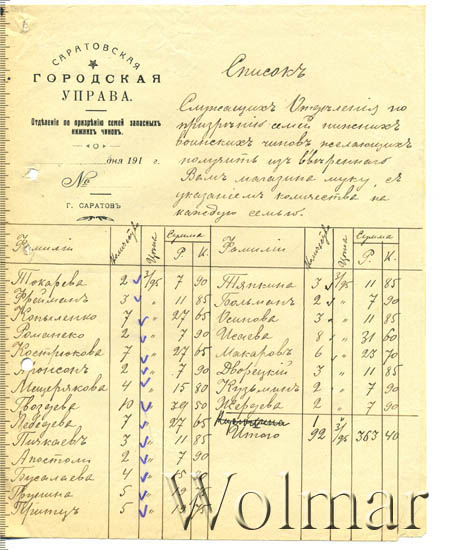 САРАТОВСКАЯ
ГОРОДСКАЯ
УПРАВА.
Отдѣленіе по призрѣнію семей запасныхъ
нижнихъ чиновъ.
дня 191 г.
№
Г. САРАТОВЪ
Списокъ
Служащихъ Отдѣленія по
призрѣнію семей нижнихъ
воинскихъ чиновъ желающихъ
получить изъ ввѣреннаго
Вамъ магазина муку, съ
указаніемъ количества на
каждую семью.
Фамиліи Количество Цѣна Сумма Р. К. Фамиліи Количество Цѣна Сумма Р. К.
Токарева 2 3/95 7 90 Тяпкина 3 3/95 11 85
Фрейманъ 3 " 11 85 Больманъ 2 " 7 90
Копыленко 7 " 27 65 Осипова 3 " 11 85
Романеко 2 " 7 90 Исаева 8 " 31 60
Кострюкова 7 " 27 65 Макаровъ 6 " 23 70
2 " 7 90 Дворецкій 3 " 11 85
Мещерякова 4 " 15 80 Кузьминъ 2 " 7 90
Гвоздева 10 " 39 50 2 " 7 90
Лебедева 7 " 27 65
Пичкаевъ 3 " 11 85 Итого 92 3/95 363 40
Апостоли 2 " 7 90
Бусалаева 4 " 15
5 " 19 75
Притцъ 5 " 19 75
Wolmar